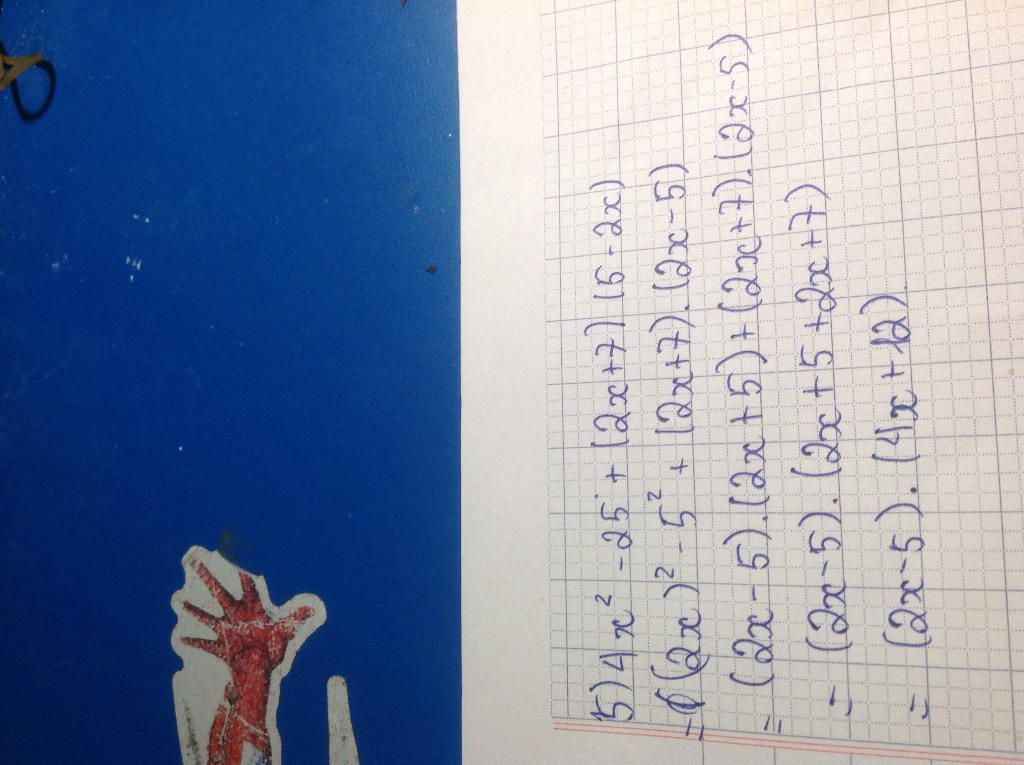 5) 4x² - 25 + (2x+7) (5 - 2x)
= (2x)² - 5² + (2x+7).(2x-5)
= (2x - 5).(2x + 5) + (2x+7).(2x-5)
= (2x-5).(2x + 5 + 2x + 7)
= (2x-5).(4x + 12)